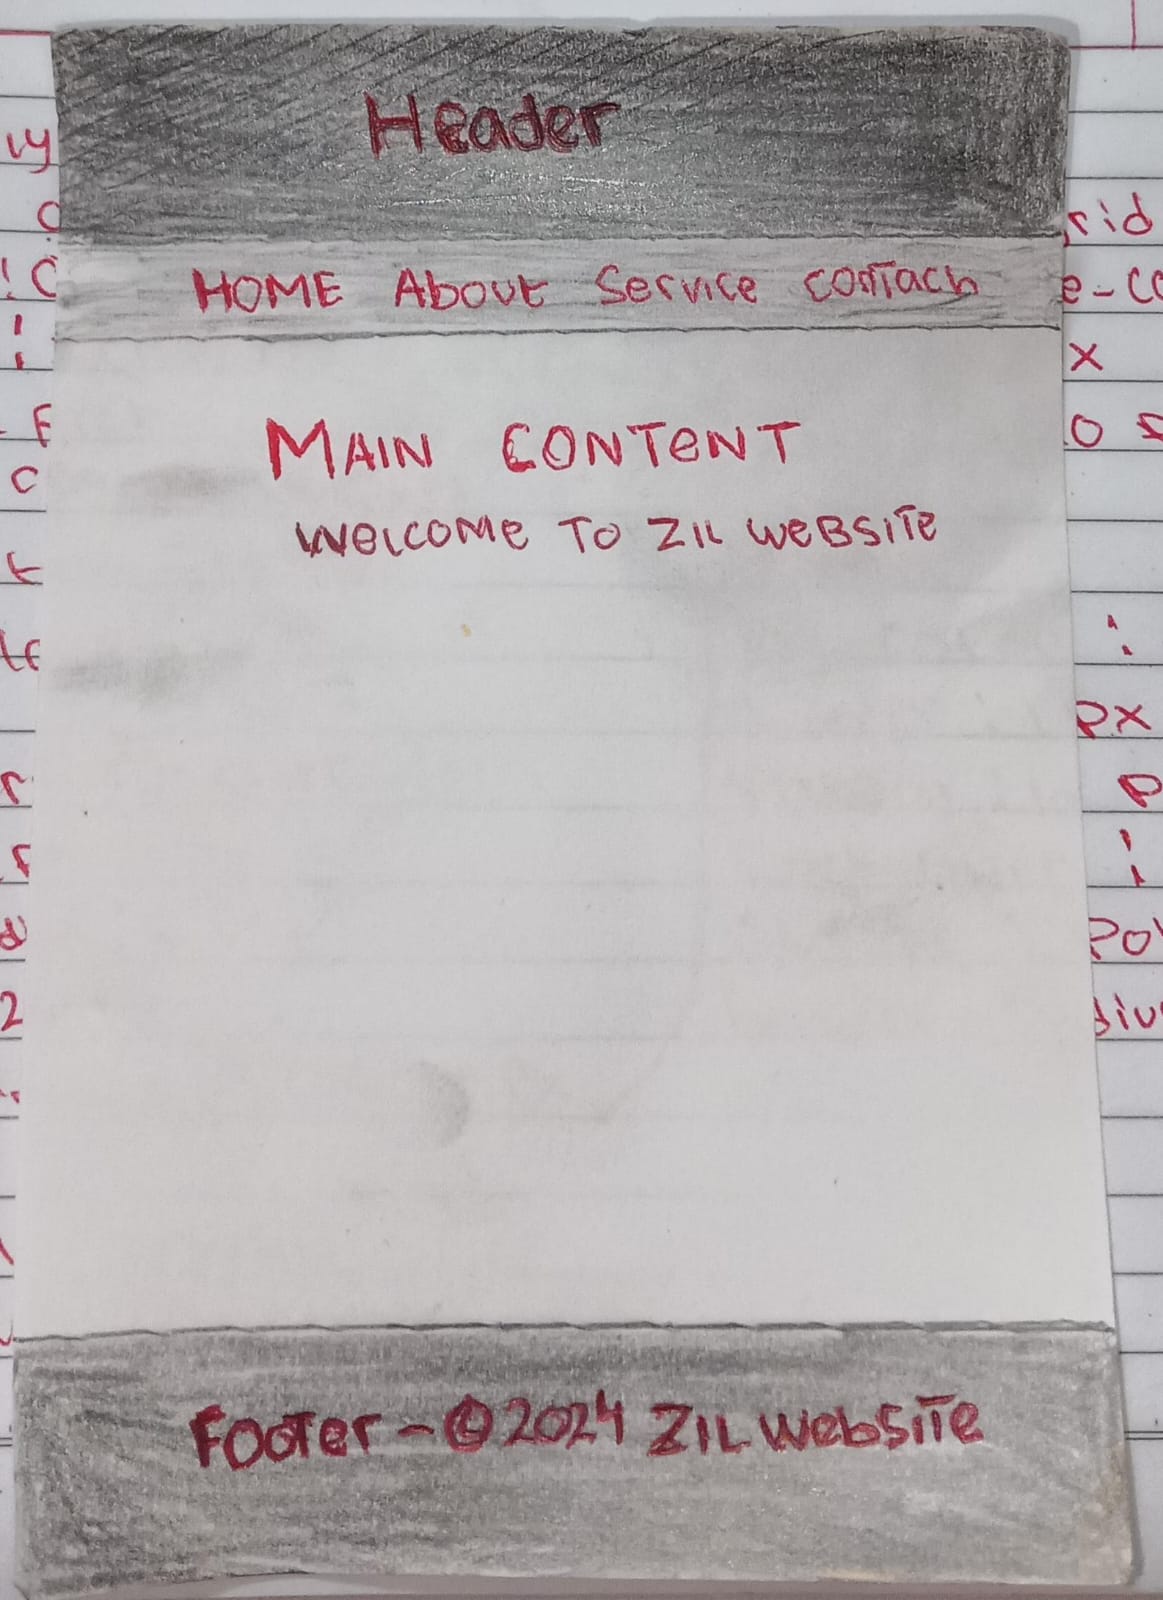 Header
HOME About Service contach
MAIN CONTENT
WELCOME TO ZIL WEBSITE
Footer - © 2024 ZIL WebSite
rid
e-co
x
px